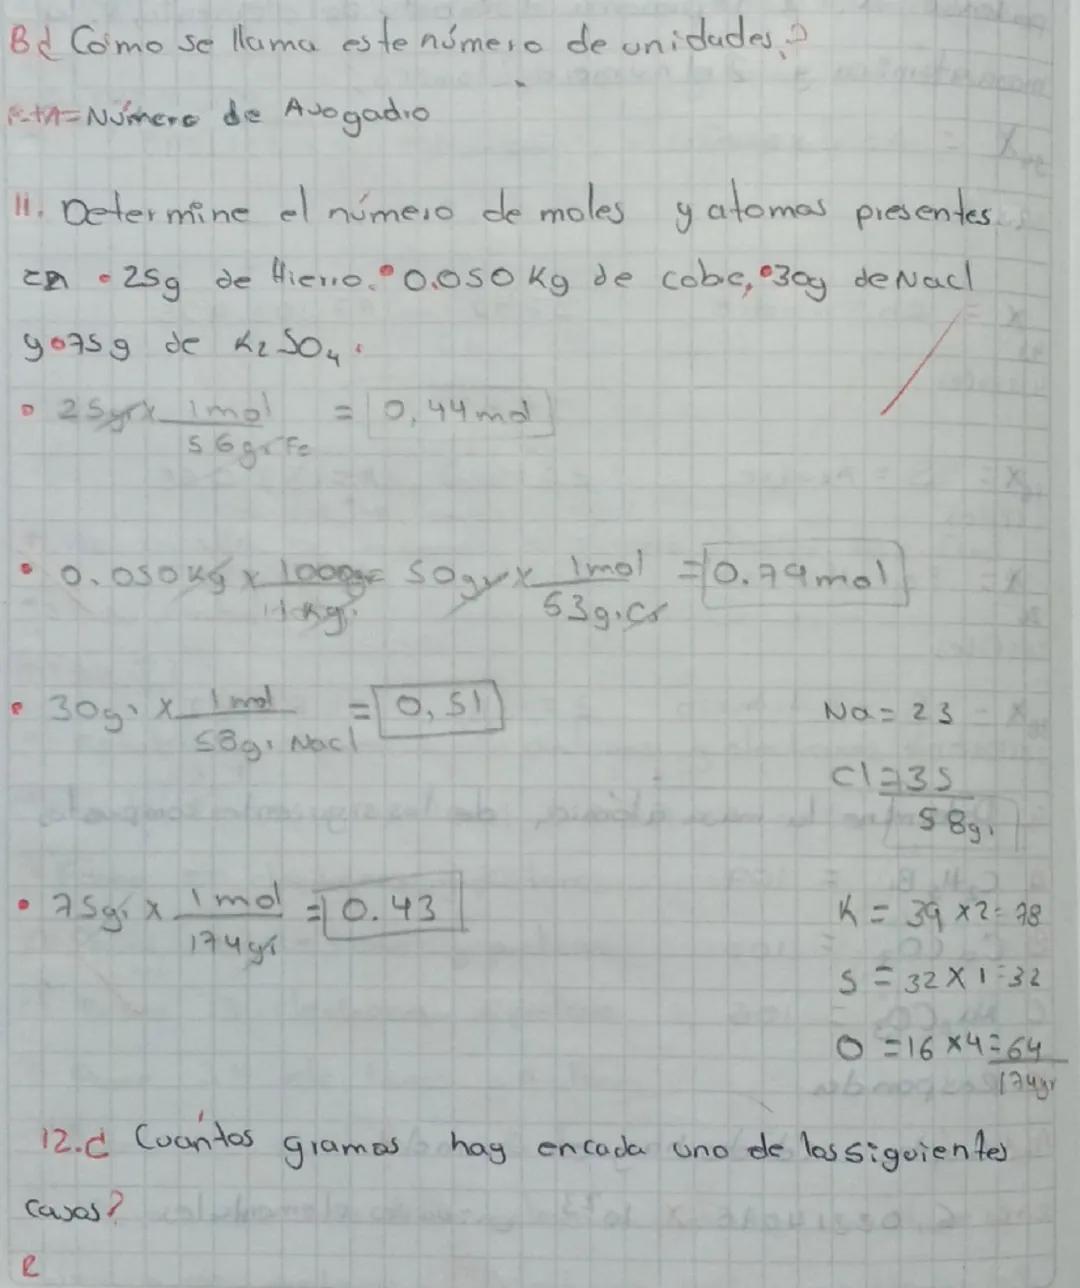 B ¿ Cómo se llama este número de unidades?
RtA = Número de Avogadro
11. Determine el número de moles y atomos presentes
en • 25g de Hierro. • 0.050 Kg de cobre, • 30g de Nacl
y • 75g de K2SO4.
• 25gr x 1mol / 56gr Fe = 0,44 mol
• 0.050 Kg x 1000g / 1 Kg = 50gr x 1mol / 63g. = 0.79 mol
• 30g. x 1 mol / 58g. Nacl = 0,51
Na = 23
Cl = 35
58g.
• 75g. x 1 mol / 174gr = 0.43
K = 39 x 2 = 78
S = 32 x 1 = 32
O = 16 x 4 = 64
174gr
12. ¿ Cuántos gramos hay en cada uno de los siguientes
casos?
R